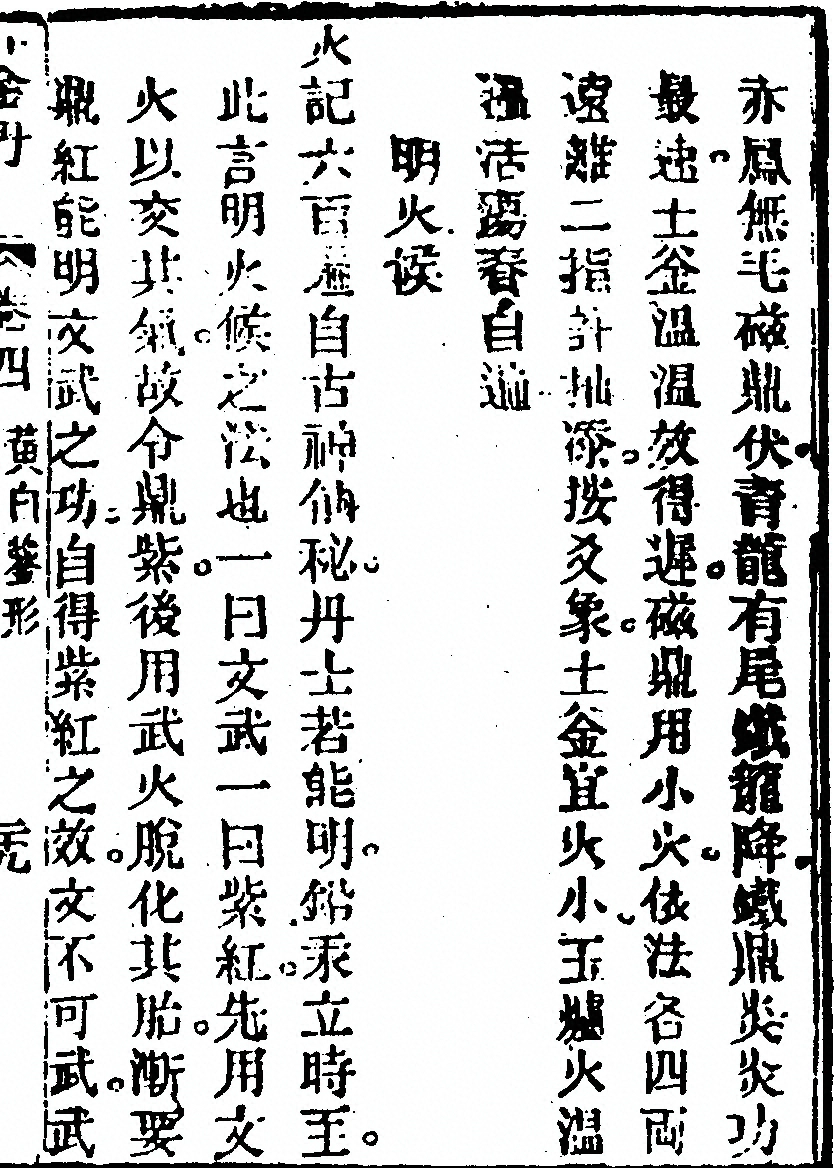 亦鳳無毛磁鼎伏青龍有尾鐵龍降鐵鼎炎炎功
最速土釜溫溫效得遲磁鼎用小火依法各四両
遠離二指計抽添按爻象土釜宜火小玉爐火溫
溫活陽春自
明火候
火記六百篇自古神仙秘丹士若能明鉛汞立時至
此言明火候之法也一曰文武一曰紫紅先用文
火以交其氣故令鼎紫後用武火脫化其胎漸要
鼎紅能明文武之功自得紫紅之效文不可武武
金丹 卷四 黃白鑒形